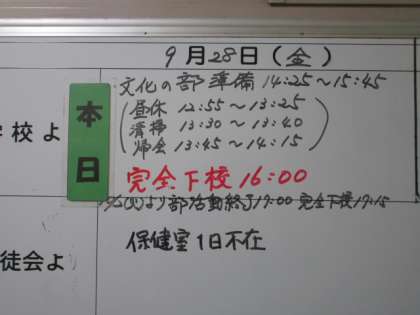 9月28日(金)
本日
文化の部準備 14:25〜15:45
(昼休 12:55〜13:25
清掃 13:30〜13:40
帰会 13:45〜14:15)
完全下校16:00
より部活動終了17:00 完全下校17:15
保健室1日不在
学校よ
徒会より